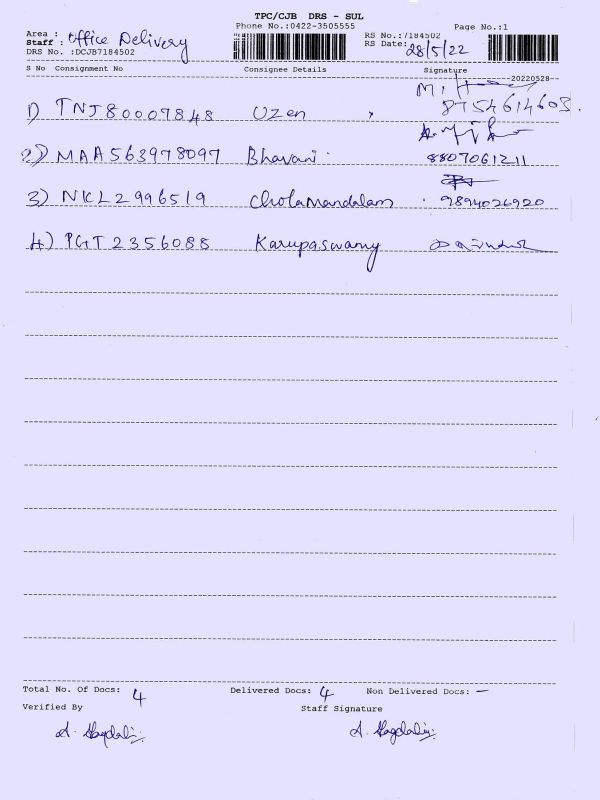 TPC/CJB DRS - SUL
Phone No.:0422-3505555 Page No.:1
Area : Office Delivery RS No.:7184502
Staff : RS Date: 28/5/22
DRS No. :DCJB7184502
S No Consignment No Consignee Details Signature
20220528
1) TNJ80007848 Uzen 8754614603.
2) MAA563978097 Bhavani 8807061211
3) NKL2996519 Cholamandalam 9894026920
4) PGT2356088 Karupaswamy
Total No. Of Docs: 4 Delivered Docs: 4 Non Delivered Docs: —
Verified By Staff Signature